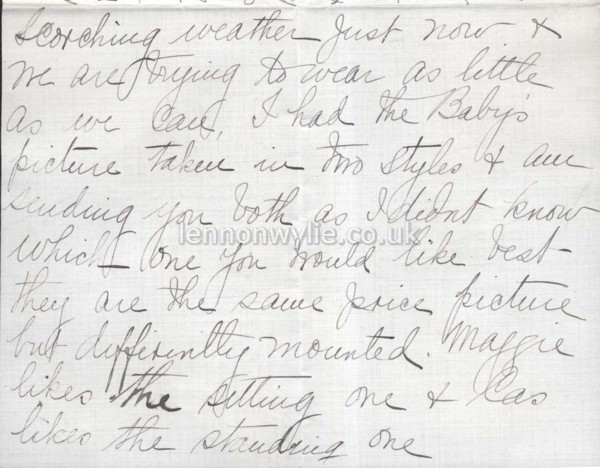 scorching weather just now &
we are trying to wear as little
as we can, I had the Baby's
picture taken in two styles & am
sending you both as I didnt know
lennonwylie.co.uk
which one you would like best -
they are the same price picture
but differintly mounted. Maggie
likes the sitting one & Cas
likes the standing one